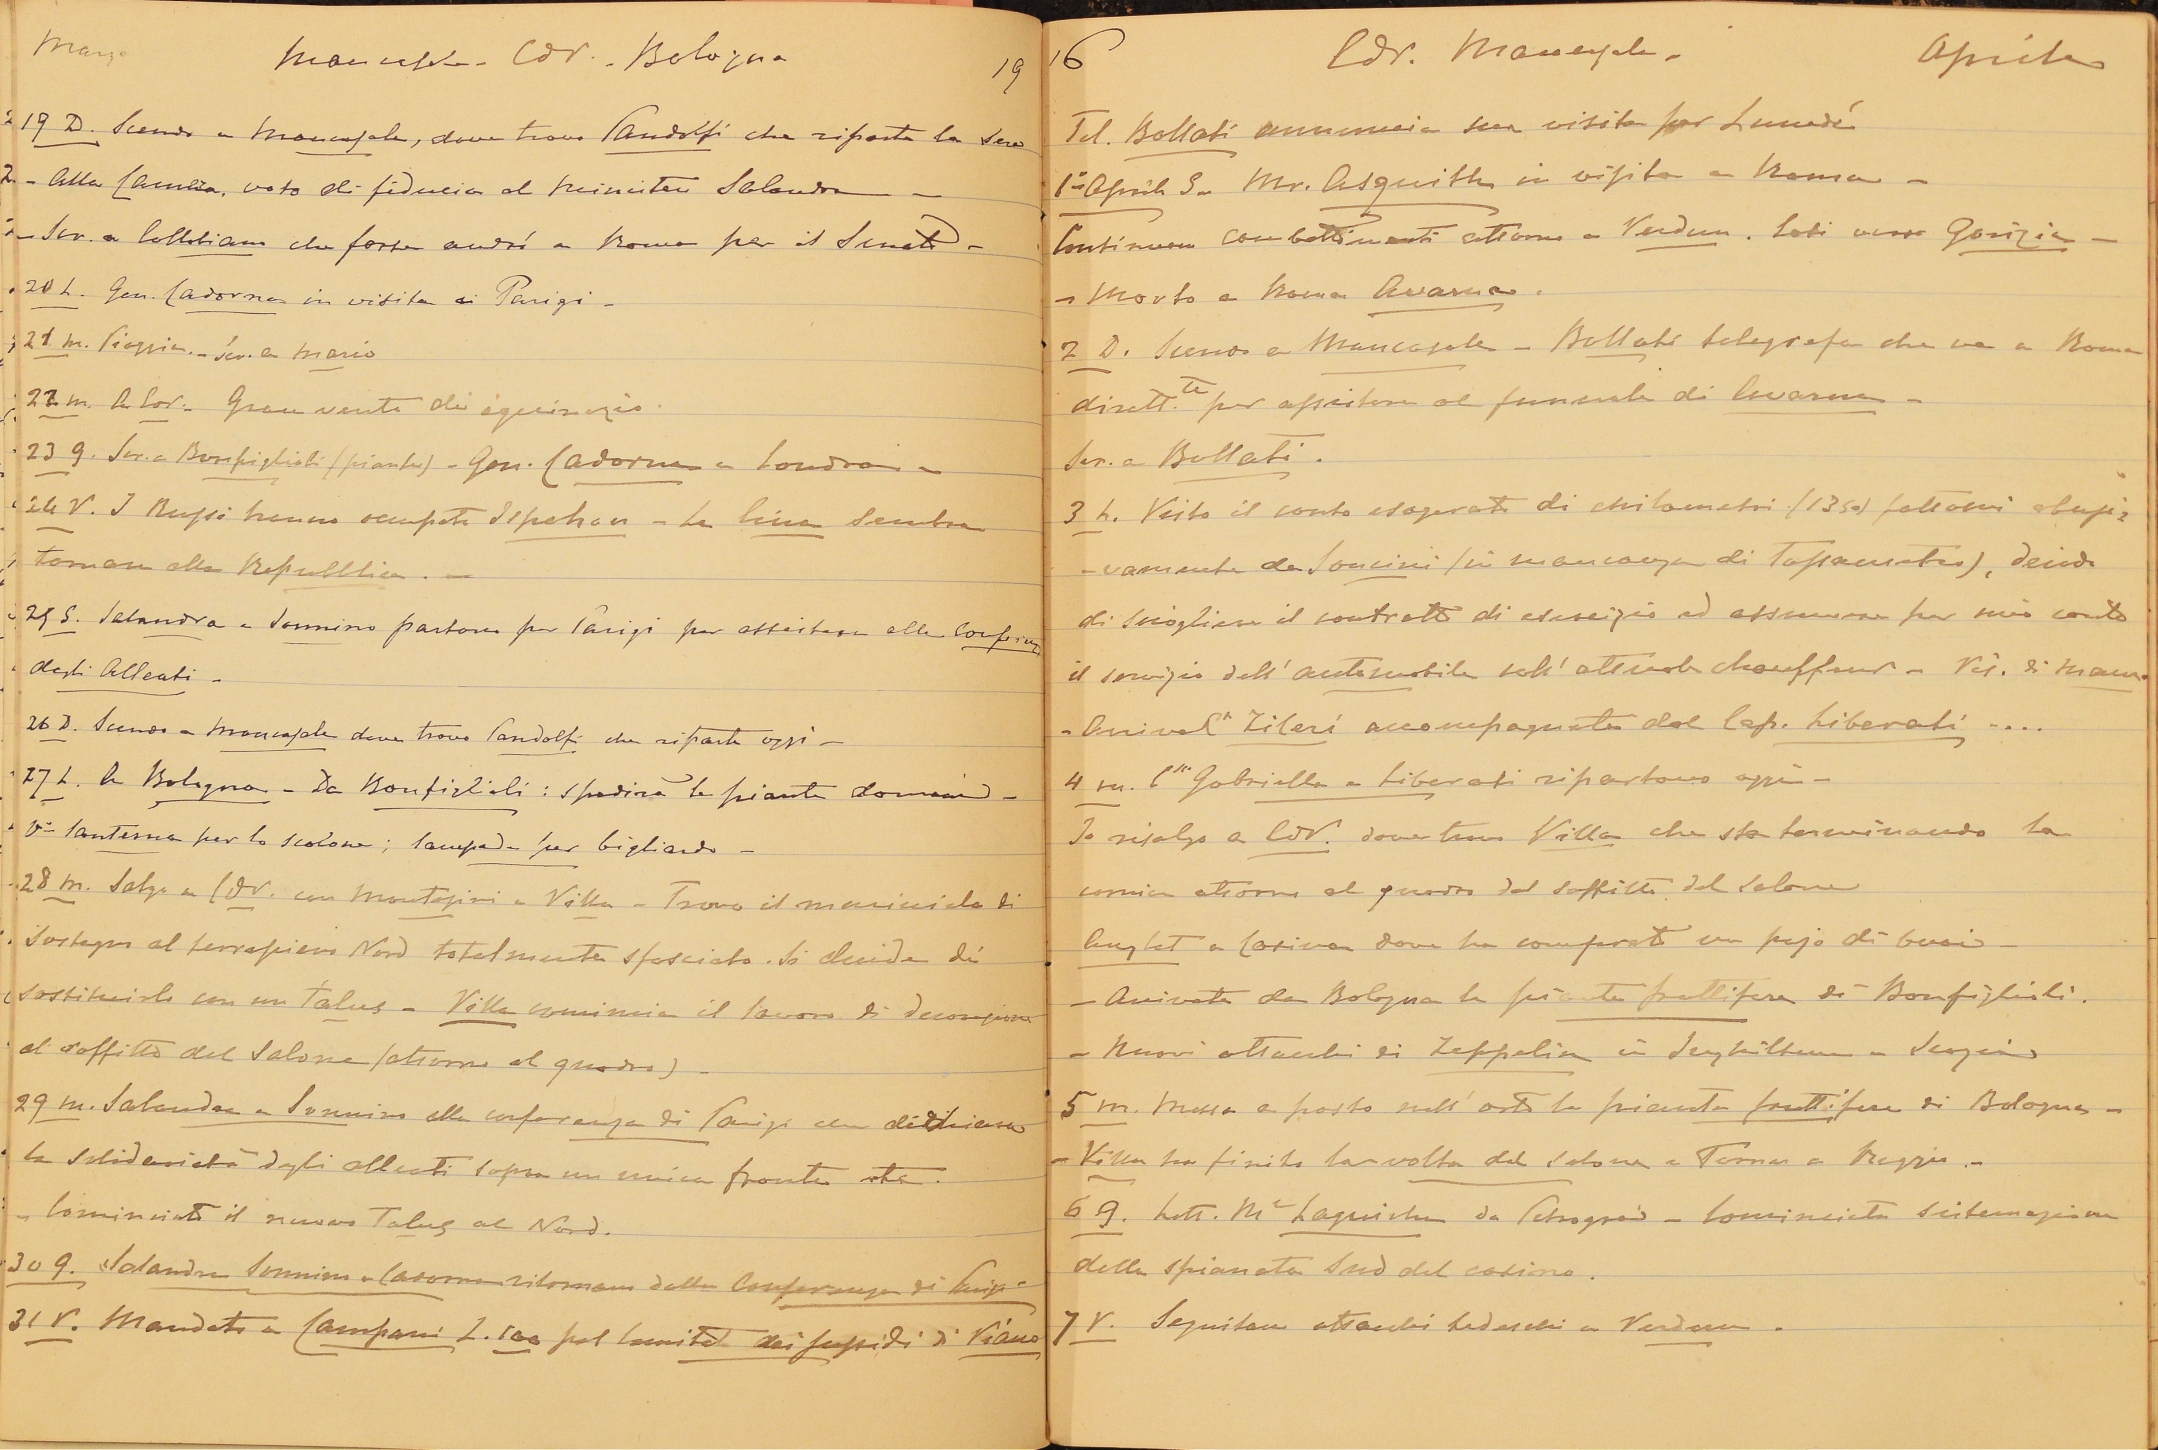 Marzo Mancasale - CdV. - Bologna 19
19 D. Scendo a Mancasale, dove trovo Pandolfi che riparte la sera
- Alla Camera, voto di fiducia al ministero Salandra -
- Scr. a che forse andrò a Roma per il Senato -
20 L. Gen. Cadorna in visita a Parigi -
21 m. Pioggia. - Scr. a Mario
22 m. A Cor. - Gran vento di equinozio.
23 g. Scr. a Bonfiglioli (piante) - Gen. Cadorna a Londra -
24 V. I Russi hanno occupato Ispahan - La Cina sembra
tornare alla Repubblica. -
25 S. Salandra e Sonnino partono per Parigi per assistere alla Conferenza
degli Alleati -
26 D. Scendo a Mancasale dove trovo Pandolfi che riparte oggi -
27 L. A Bologna - Da Bonfiglioli: spedirà le piante domani -
Va lanterna per lo scalone; lampada per bigliardo -
28 m. Salgo a CdV. con Montagini e Villa - Trovo il muricciolo di
sostegno al terrapieno Nord totalmente sfasciato. Si decide di
sostituirlo con un Talus - Villa comincia il lavoro di decorazione
al soffitto del Salone (attorno al quadro) -
29 m. Salandra e Sonnino alla conferenza di Parigi che dichiara
la solidarietà degli alleati sopra un unico fronte etc.
- Cominciato il nuovo Talus al Nord.
30 g. Salandra Sonnino e Cadorna ritornano dalla Conferenza di Parigi -
31 V. Mandato a Campani L. 100 pel comitato dei sussidi di Viano
16 CdV. Mancasale - Aprile
Tel. Bollati annuncia sua visita per Lunedì
1° Aprile S. Mr. Asquith in visita a Roma -
Continuano combattimenti attorno a Verdun. Così verso Gorizia -
- Morto a Roma Avarna.
2 D. Scendo a Mancasale - Bollati telegrafa che va a Roma
dirett.te per assistere al funerale di Avarna -
Scr. a Bollati.
3 L. Visto il conto esagerato di chilometri (1350) fattomi abusi-
-vamente da Soncini (in mancanza di Tassametro), decido
di sciogliere il contratto di esercizio ed assumere per mio conto
il servizio dell'automobile coll'attuale chauffeur - Vis. di
- Arriva Csa Zileri accompagnata dal Cap. Liberati -...
4 m. Csa Gabriella e Liberati ripartono oggi -
Io risalgo a CdV. dove trovo Villa che sta terminando la
cornice attorno al quadro del soffitto del Salone
a Casina dove ha comprato un pajo di buoi -
- Arrivate da Bologna le piante fruttifere di Bonfiglioli.
- Nuovi attacchi di Zeppelin in Inghilterra e Scozia
5 m. Messe a posto nell'orto le piante fruttifere di Bologna -
- Villa ha finito la volta del Salone e Torna a Reggio. -
6 g. Lett. Mr da Petrograd - Cominciata sistemazione
della spianata Sud del casino.
7 V. Seguitano attacchi tedeschi a Verdun.